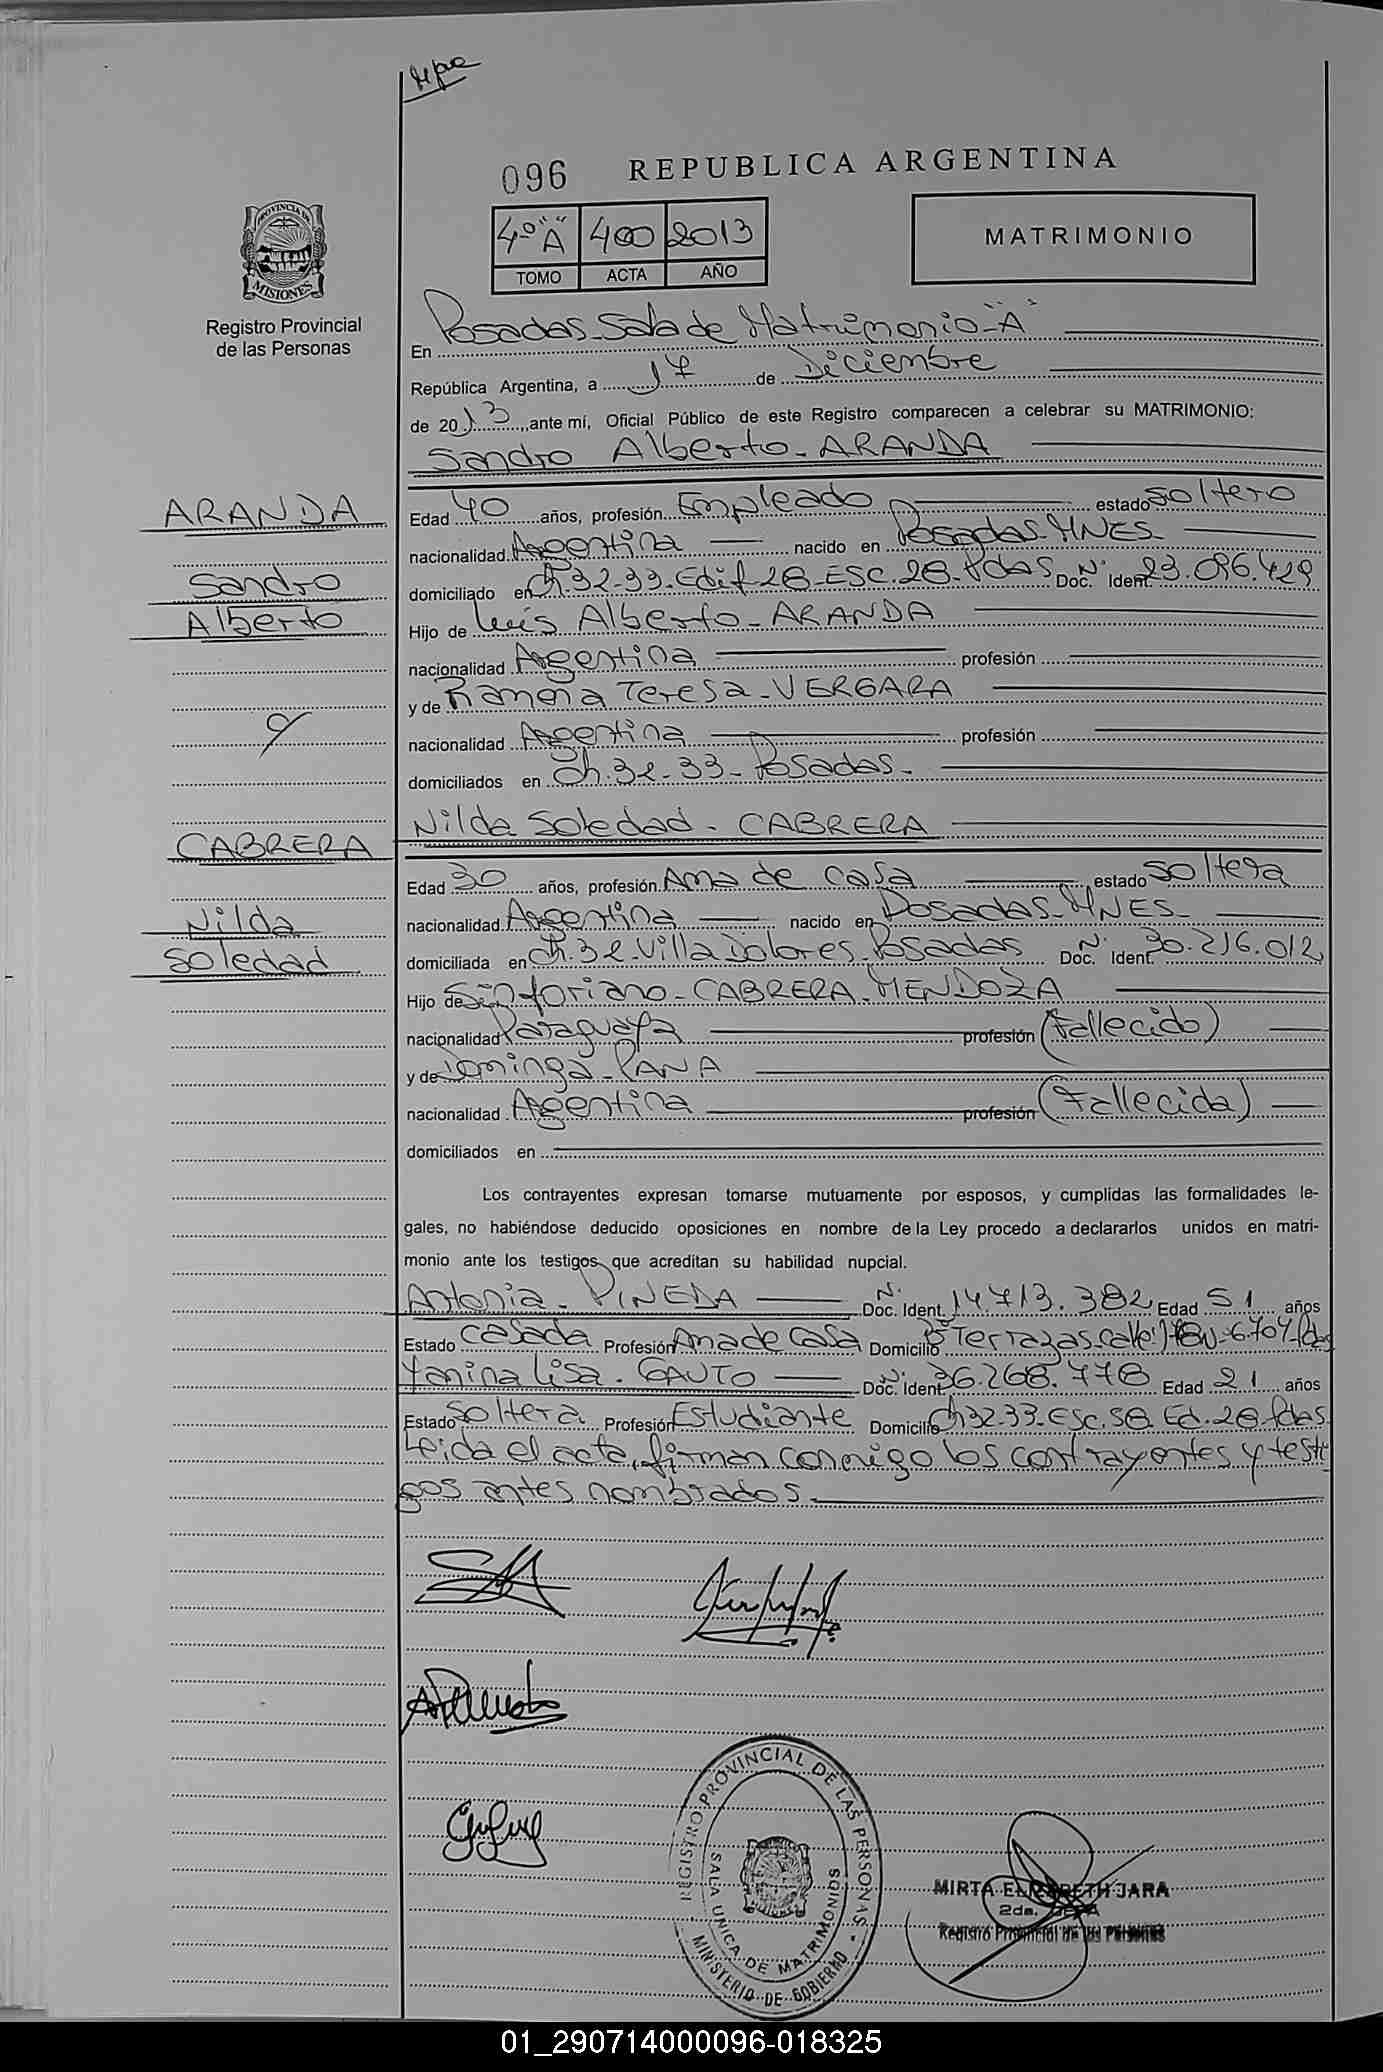 096 REPUBLICA ARGENTINA
4º "A" 400 2013
TOMO ACTA AÑO
MATRIMONIO
PROVINCIA DE MISIONES
Registro Provincial
de las Personas
En Posadas-Sala de Matrimonio-"A"
República Argentina, a 17 de Diciembre
de 2013, ante mí, Oficial Público de este Registro comparecen a celebrar su MATRIMONIO:
Sandro Alberto-ARANDA
ARANDA
Sandro
Alberto
Edad 40 años, profesión Empleado estado soltero
nacionalidad Argentina nacido en Posadas-MNES-
domiciliado en Ch.32-33-Edif-28-ESC.28-Pdas Doc. N° Ident. 23.096.429
Hijo de Luis Alberto-ARANDA
nacionalidad Argentina profesión
y de Ramona Teresa-VERGARA
nacionalidad Argentina profesión
domiciliados en Ch.32-33-Posadas-
Nilda Soledad-CABRERA
CABRERA
Nilda
Soledad
Edad 30 años, profesión Ama de casa estado soltera
nacionalidad Argentina nacido en Posadas-MNES-
domiciliada en Ch.32-Villa Dolores-Posadas Doc. N° Ident. 30.216.012
Hijo de Sinforiano-CABRERA-MENDOZA
nacionalidad Paraguaya profesión (Fallecido)
y de Dominga-PANA
nacionalidad Argentina profesión (Fallecida)
domiciliados en
Los contrayentes expresan tomarse mutuamente por esposos, y cumplidas las formalidades le-
gales, no habiéndose deducido oposiciones en nombre de la Ley procedo a declararlos unidos en matri-
monio ante los testigos que acreditan su habilidad nupcial.
Antonia-PINEDA Doc. N° Ident. 14.713.382 Edad 51 años
Estado casada Profesión Ama de Casa Domicilio Terrazas calle
Yanina Lisa-GAUTO Doc. N° Ident. 36.268.778 Edad 21 años
Estado soltera Profesión Estudiante Domicilio Ch32-33-Esc.58-Ed.28-Pdas
Leida el acta, firman conmigo los contrayentes y testi
gos antes nombrados-
REGISTRO PROVINCIAL DE LAS PERSONAS
SALA UNICA DE MATRIMONIOS
MINISTERIO DE GOBIERNO
MIRTA ELIZABETH JARA
2da.
Registro Provincial de las Personas
01_290714000096-018325